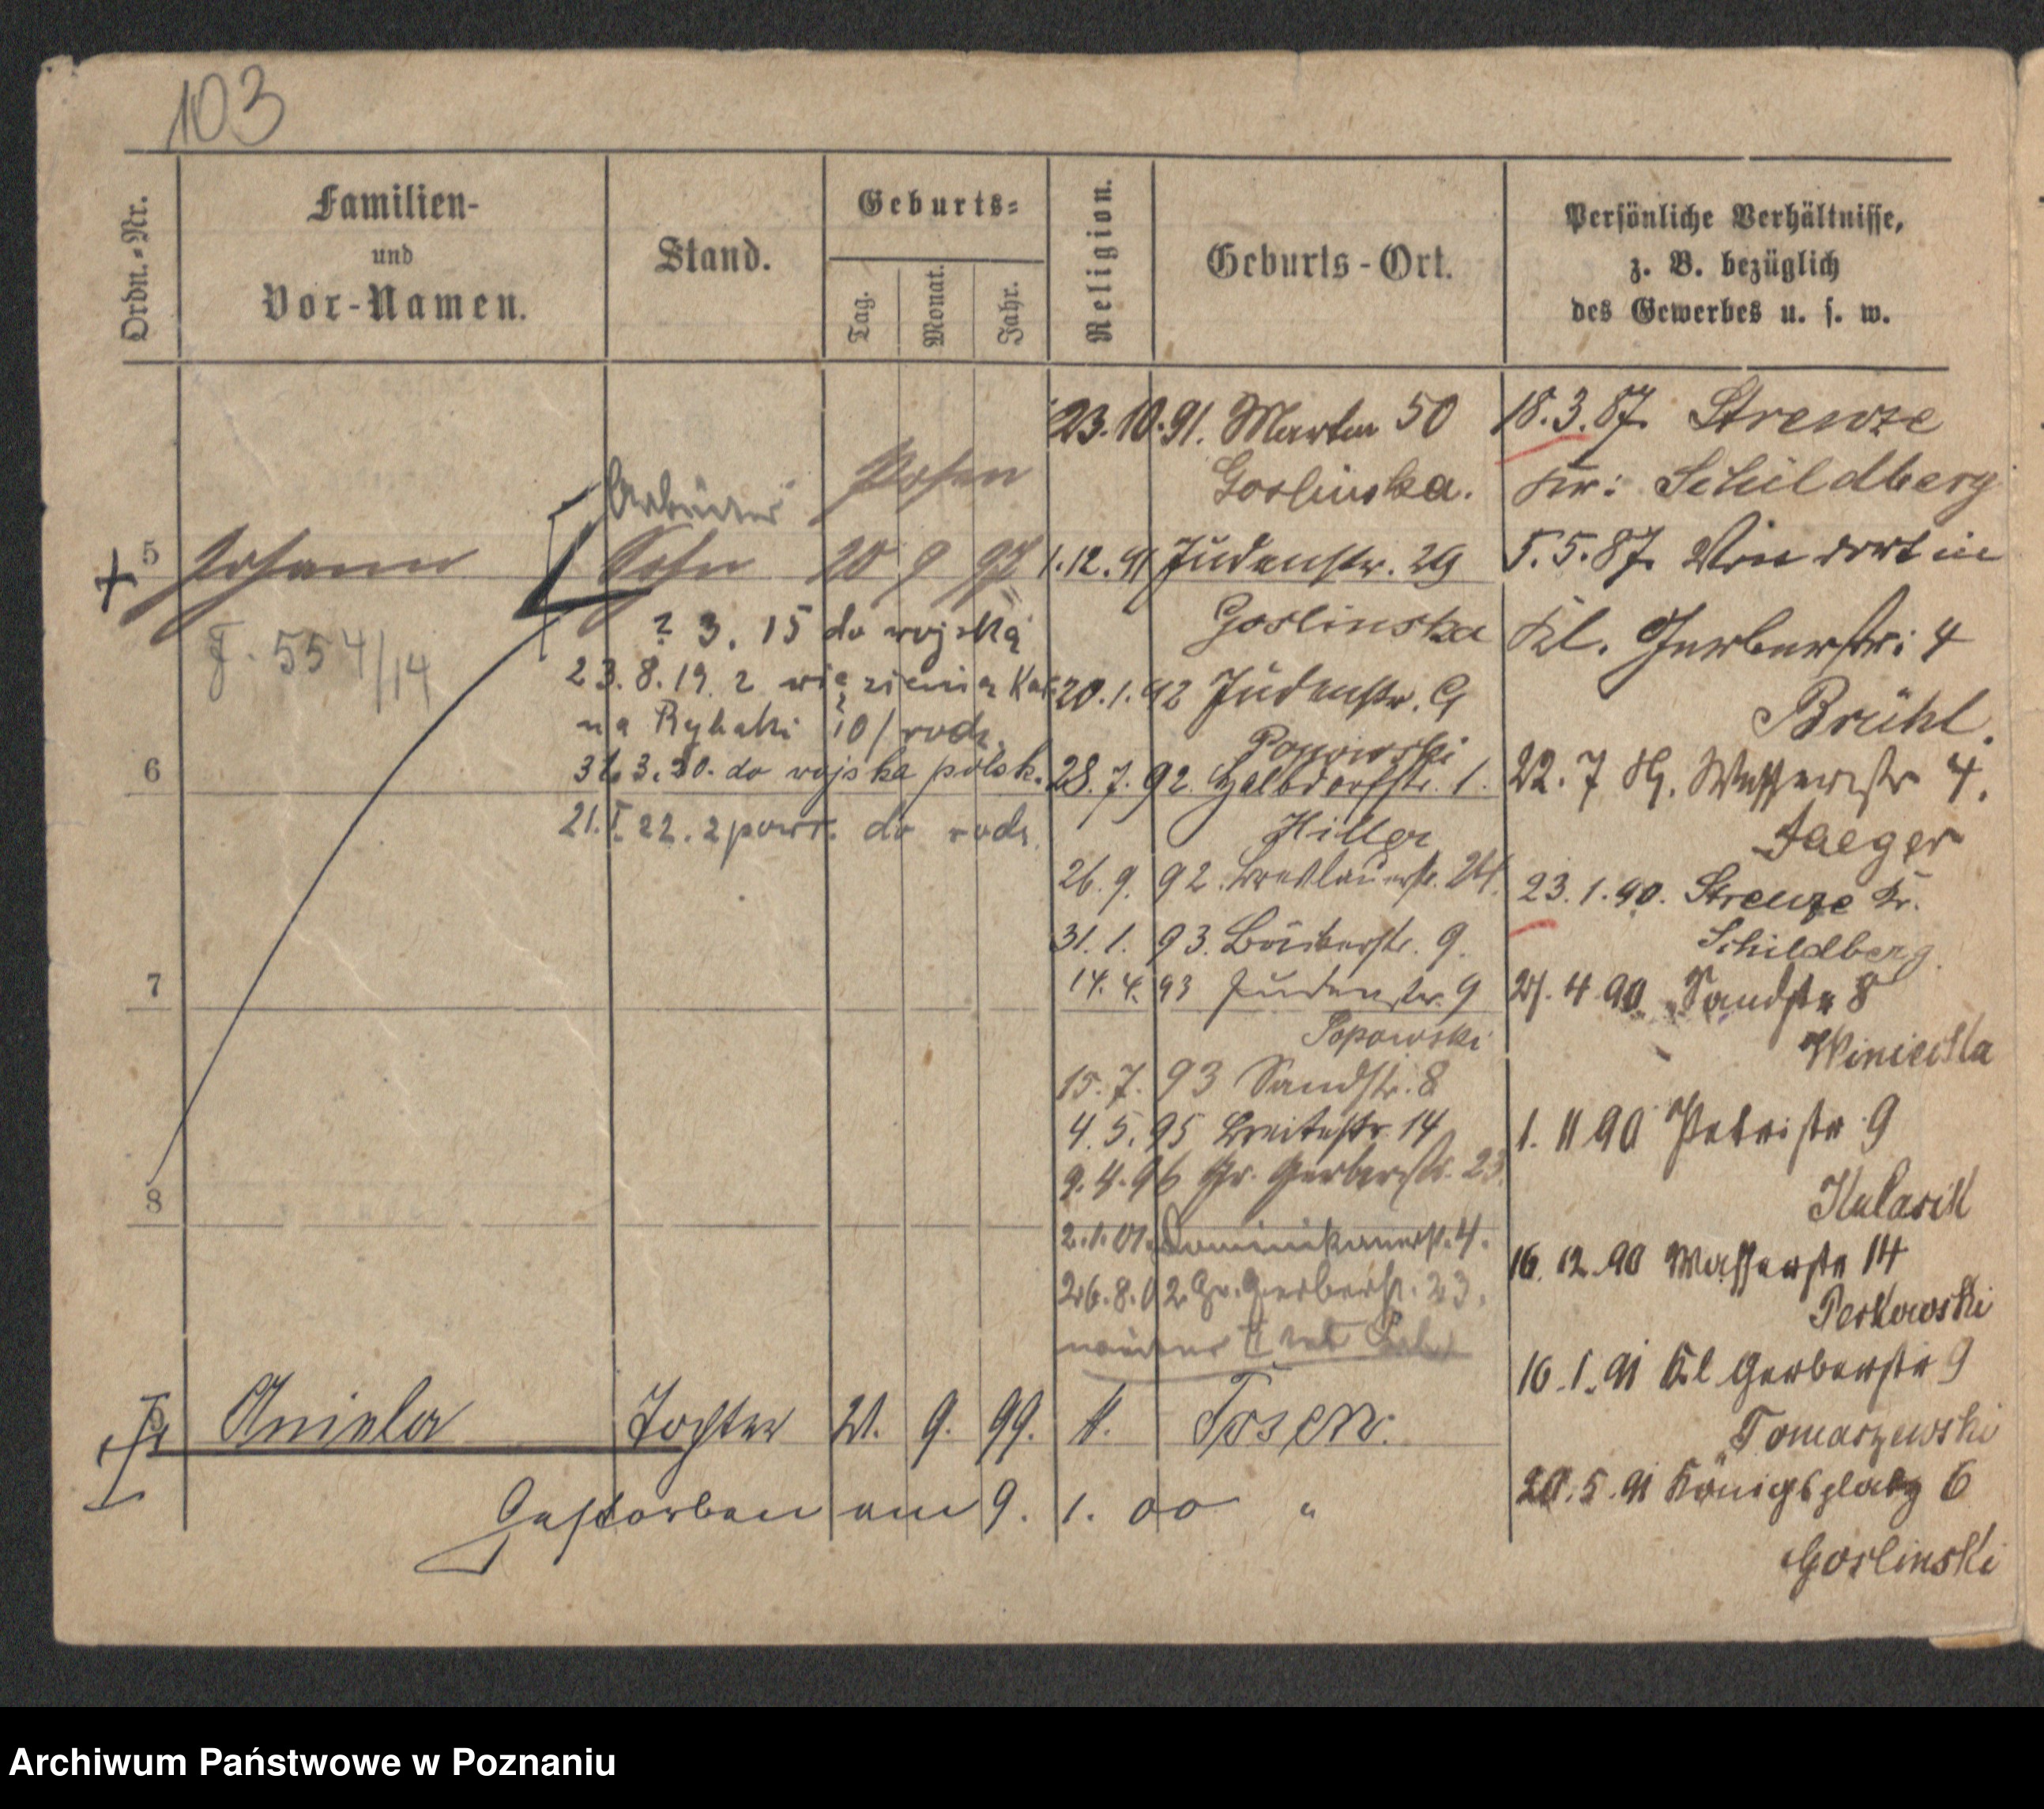 103
Ordn.-Nr.
Familien-
und
Vor-Namen.
Stand.
Geburts-
Tag.
Monat.
Jahr.
Religion.
Geburts-Ort.
Persönliche Verhältnisse,
z. B. bezüglich
des Gewerbes u. s. w.
Arbeiter Posen
5 Johann Sohn 20 9 97
F. 554/14
? 3. 15 do wojska
23.8.19. z więzienia
na Rybaki 10/rodz.
6
3.20. do wojska polsk.
21.I.22. z powr. do rodz.
7
8
Aniela Tochter 21. 9. 99. k. Posen.
Gestorben am 9. 1. 00 "
23.10.91. Martin 50
Goslinska.
1.12.91 Judenstr. 29
Goslinska
20.1.92 Judenstr. 9
Popowski
28.7.92. Halbdorfstr. 1.
Hiller
26.9.92. Breslauerstr.
31.1.93. Bäckerstr. 9.
14.4.93 Judenstr. 9
Popowski
15.7.93 Sandstr. 8
4.5.95 Breitestr. 14
9.4.96 Gr. Gerberstr. 23
2.1.01. Dominikanerstr. 4.
26.8.02 Gr. Gerberstr. 23.
18.3.87. Strenze
Kr: Schildberg
5.5.87. Von dort in
Kl. Gerberstr: 4
Brühl.
22.7 Wasserstr 4.
Jaeger
23.1.90. Strenze Kr.
Schildberg.
4 90 Sandstr 8
Winiecka
1. 11 90 Petristr 9
Kularik
16. 12. 90 Wasserstr 14
Perkowski
16.1.91 Kl Gerberstr 9
Tomaszewski
20.5.91 Königsplatz 6
Goslinski
Archiwum Państwowe w Poznaniu